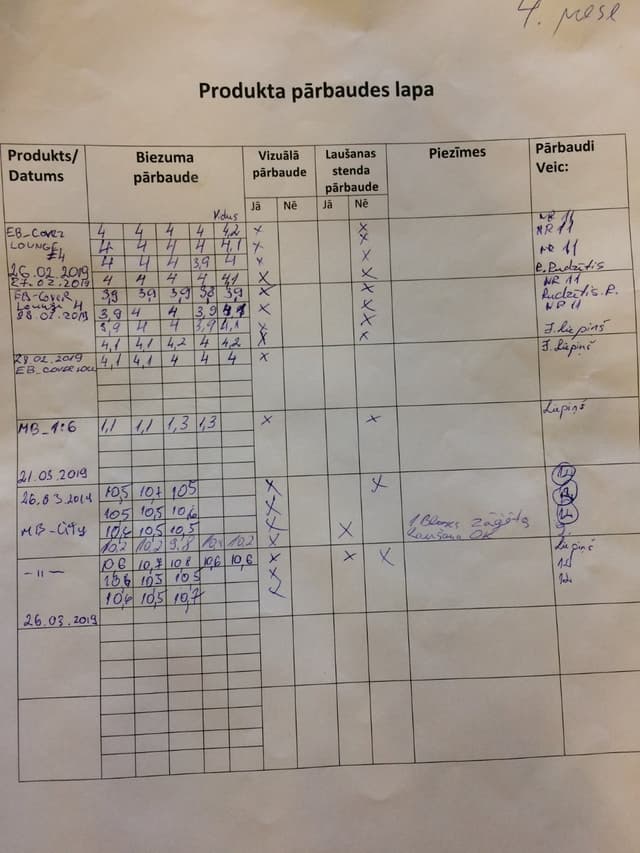 4. mese
Produkta pārbaudes lapa
Produkts/ Datums Biezuma pārbaude Vizuālā pārbaude Laušanas stenda pārbaude Piezīmes Pārbaudi Veic:
Jā Nē Jā Nē
NR 11
EB-Cover 4 4 4 4 4,2 x x NR 11
LOUNGE 4 4 4 4 4,1 x x
4 4 4 3,9 4 x x NR 11
26.02.2019 R. Rudzītis
27.02.2019 4 4 4 4 4,1 x x NR 11
EB-Cover 3,9 3,9 3,9 3,9 x x Rudzītis. R.
Lounge 4 3,9 4 4 3,9 x x NR 11
28.02.2019
3,9 4 4 3,9 4,1 x x J. Liepiņš
4,1 4,1 4,2 4 4,2 x x
28.02.2019 4,1 4,1 4 4 4 x J. Liepiņš
EB_COVER
MB_1:6 1,1 1,1 1,3 1,3 x x Lapiņš
21.03.2019
26.03.2019 10,5 10,7 10,5 x x
10,5 10,5 10,6 x
MB-City 10,6 10,5 10,5 x x 1 Bloks Zāģēts
10,2 10,2 9,8 10,2 x Laušana OK
-"- 10,6 10,7 10,8 10,6 10,6 x x x Lapiņš
10,6 10,5 10,5 x
10,6 10,5 10,7 x
26.03.2019